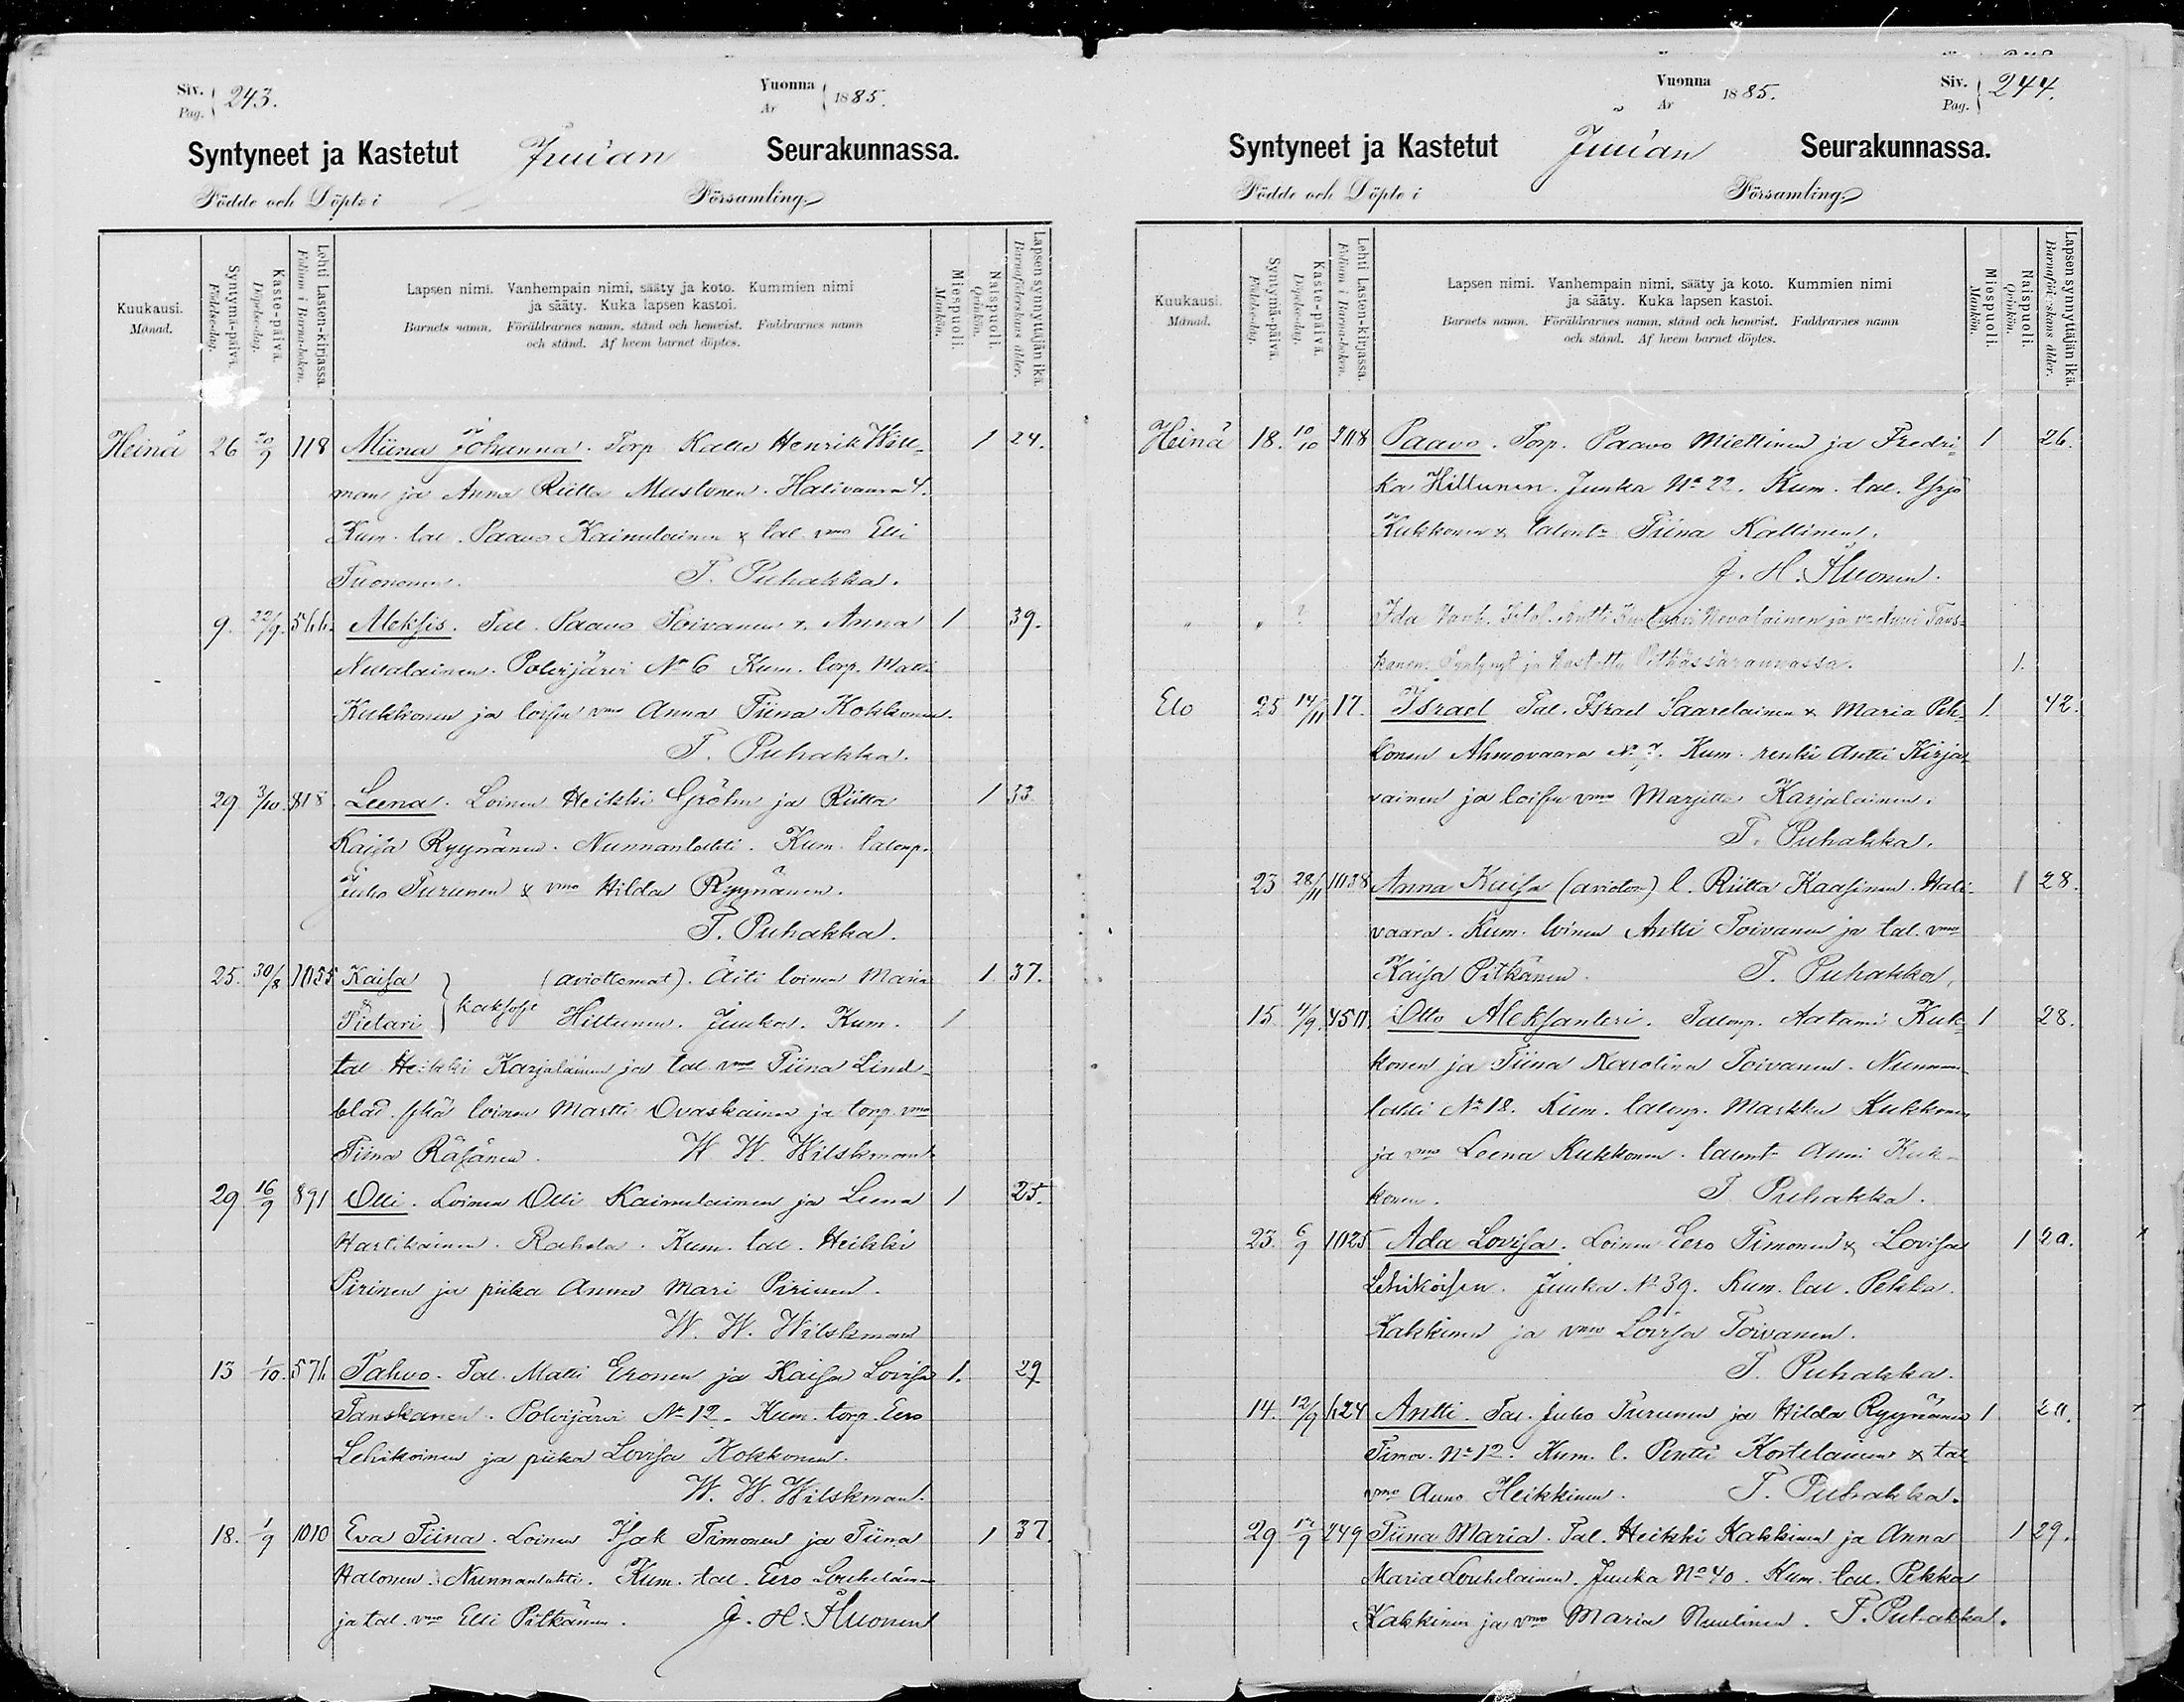 Siv. 243.
Pag.
Vuonna 1885.
År
Syntyneet ja Kastetut Juuan Seurakunnassa.
Födde och Döpte i Församling.
Kuukausi. Månad.
Syntymä-päivä. Födelse-dag.
Kaste-päivä. Döpelse-dag.
Lehti Lasten-kirjassa. Folium i Barna-boken.
Lapsen nimi. Vanhempain nimi, sääty ja koto. Kummien nimi
ja sääty. Kuka lapsen kastoi.
Barnets namn. Föräldrarnes namn, stånd och hemvist. Faddrarnes namn
och stånd. Af hvem barnet döptes.
Miespuoli. Mankön.
Naispuoli. Qvinkön.
Lapsen synnyttäjän ikä. Barnaföderskans ålder.
Heinä 26 20/9 118 Miina Johanna. Torp. Kalle Henrik Will- 1 24.
man ja Anna Riitta Mustonen. Halivaara 4.
Kum. tal. Paavo Kainulainen & tal. vmo Elli
Tuononen. T. Puhakka.
9. 22/9. 566. Aleksis. Tal. Paavo Toivanen & Anna 1 39.
Nevalainen. Polvijärvi No 6 Kum. torp. Matti
Kukkonen ja loisen vmo Anna Tiina Kokkonen.
T. Puhakka.
29. 3/10. 818. Leena. Loinen Heikki Gröhn ja Riitta 1 33
Kaisa Ryynänen. Nunnanlahti. Kum. talonp.
Juho Turunen & vmo Hilda Ryynänen.
T. Puhakka.
25. 30/8 1055 Kaisa (aviottomat). Äiti loinen Maria 1. 37.
& Pietari kaksoset Hiltunen. Juuka. Kum. 1
tal. Heikki Karjalainen ja tal. vmo Tiina Lind-
blad. sekä loinen Martti Ovaskainen ja torp. vmo
Tiina Räsänen. W. W. Wilskman
29 16/9 891 Olli. Loinen Olli Kainulainen ja Leena 1 25.
Hartikainen. Rahola. Kum. tal. Heikki
Pirinen ja piika Anna Mari Pirinen.
W. W. Wilskman
13 1/10. 576 Tahvo. Tal. Matti Eronen ja Kaisa Lovisa 1. 29
Tanskanen. Polvijärvi No 12. Kum. torp. Eero
Lehikoinen ja piika Lovisa Kokkonen.
W. W. Wilskman.
18. 1/9 1010 Eva Tiina. Loinen Isak Timonen ja Tiina 1 37.
Halonen. Nunnanlahti. Kum. tal. Eero Louhelainen
ja tal. vmo Elli Pitkänen. J. H. Huonen
Vuonna 1885.
År
Siv. 244.
Pag.
Syntyneet ja Kastetut Juuan Seurakunnassa.
Födde och Döpte i Församling.
Kuukausi. Månad.
Syntymä-päivä. Födelse-dag.
Kaste-päivä. Döpelse-dag.
Lehti Lasten-kirjassa. Folium i Barna-boken.
Lapsen nimi. Vanhempain nimi, sääty ja koto. Kummien nimi
ja sääty. Kuka lapsen kastoi.
Barnets namn. Föräldrarnes namn, stånd och hemvist. Faddrarnes namn
och stånd. Af hvem barnet döptes.
Miespuoli. Mankön.
Naispuoli. Qvinkön.
Lapsen synnyttäjän ikä. Barnaföderskans ålder.
Heinä 18. 10/10 Paavo. Torp. Paavo Miettinen ja Fredri- 1 26.
ka Hiltunen. Juuka No 22. Kum. tal. Yrjö
Kukkonen & talont. Tiina Kallinen.
J. H. Huonen.
" " ? Ida Nevalainen ja Tans-
kanen. Syntynyt ja kastettu Pitkässärannassa. 1.
Elo 25 14/11 17. Israel Tal. Israel Saarelainen & Maria Peh- 1. 42.
konen Ahmovaara No 7. Kum. renki Antti Kirja-
vainen ja loisen vmo Marjetta Karjalainen.
T. Puhakka.
23 28/11 1038 Anna Kaisa (avioton) l. Riitta Kaasinen. Hali- 1 28.
vaara. Kum. loinen Antti Toivanen ja tal. vmo
Kaisa Pitkänen. T. Puhakka.
15. 4/9. Otto Aleksanteri. Talonp. Aatami Kuk- 1 28.
konen ja Tiina Karolina Toivanen. Nunnan-
lahti No 18. Kum. talonp. Markku Kukkonen
ja vmo Leena Kukkonen. talont. Anni Kuk-
konen. T. Puhakka.
23. 6/9 1025 Ada Lovisa. Loinen Eero Timonen & Lovisa 1 20.
Lehikoisen. Juuka No 39. Kum. tal. Pekka
Kakkinen ja vmo Lovisa Toivanen.
T. Puhakka.
14. 12/9 624 Antti. Tal. Juho Turunen ja Hilda Ryynänen 1
Timov. No 12. Kum. l. Pentti Kortelainen & tal.
vmo Anna Heikkinen. T. Puhakka.
29 249 Tiina Maria. Tal. Heikki Kakkinen ja Anna 1 29.
Maria Louhelainen. Juuka No 40. Kum. tal. Pekka
Kakkinen ja vmo Maria Nuutinen. T. Puhakka.